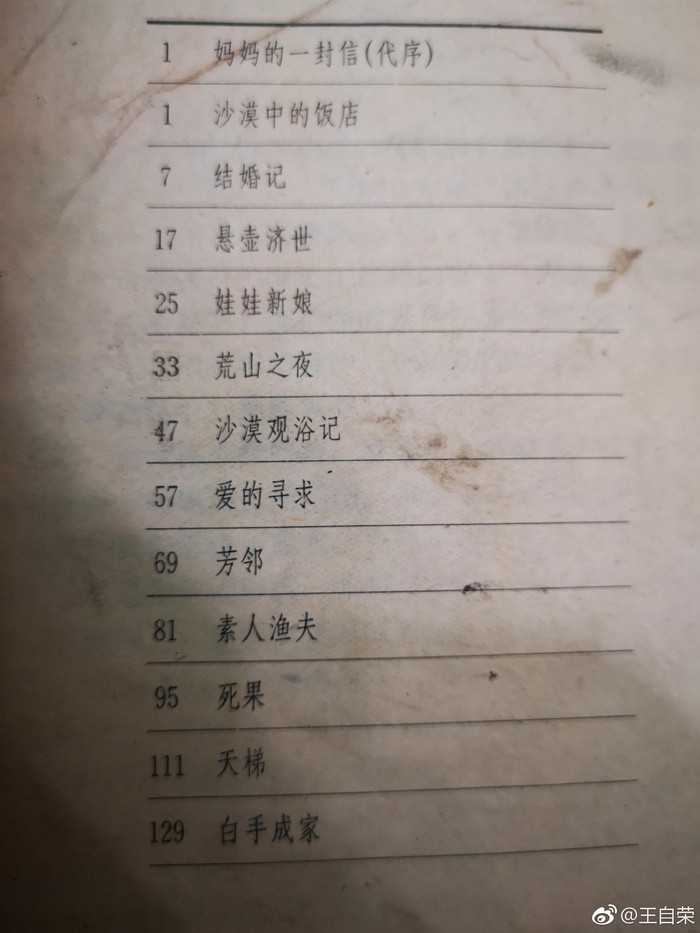 1 妈妈的一封信(代序)
1 沙漠中的饭店
7 结婚记
17 悬壶济世
25 娃娃新娘
33 荒山之夜
47 沙漠观浴记
57 爱的寻求
69 芳邻
81 素人渔夫
95 死果
111 天梯
129 白手成家
@王自荣